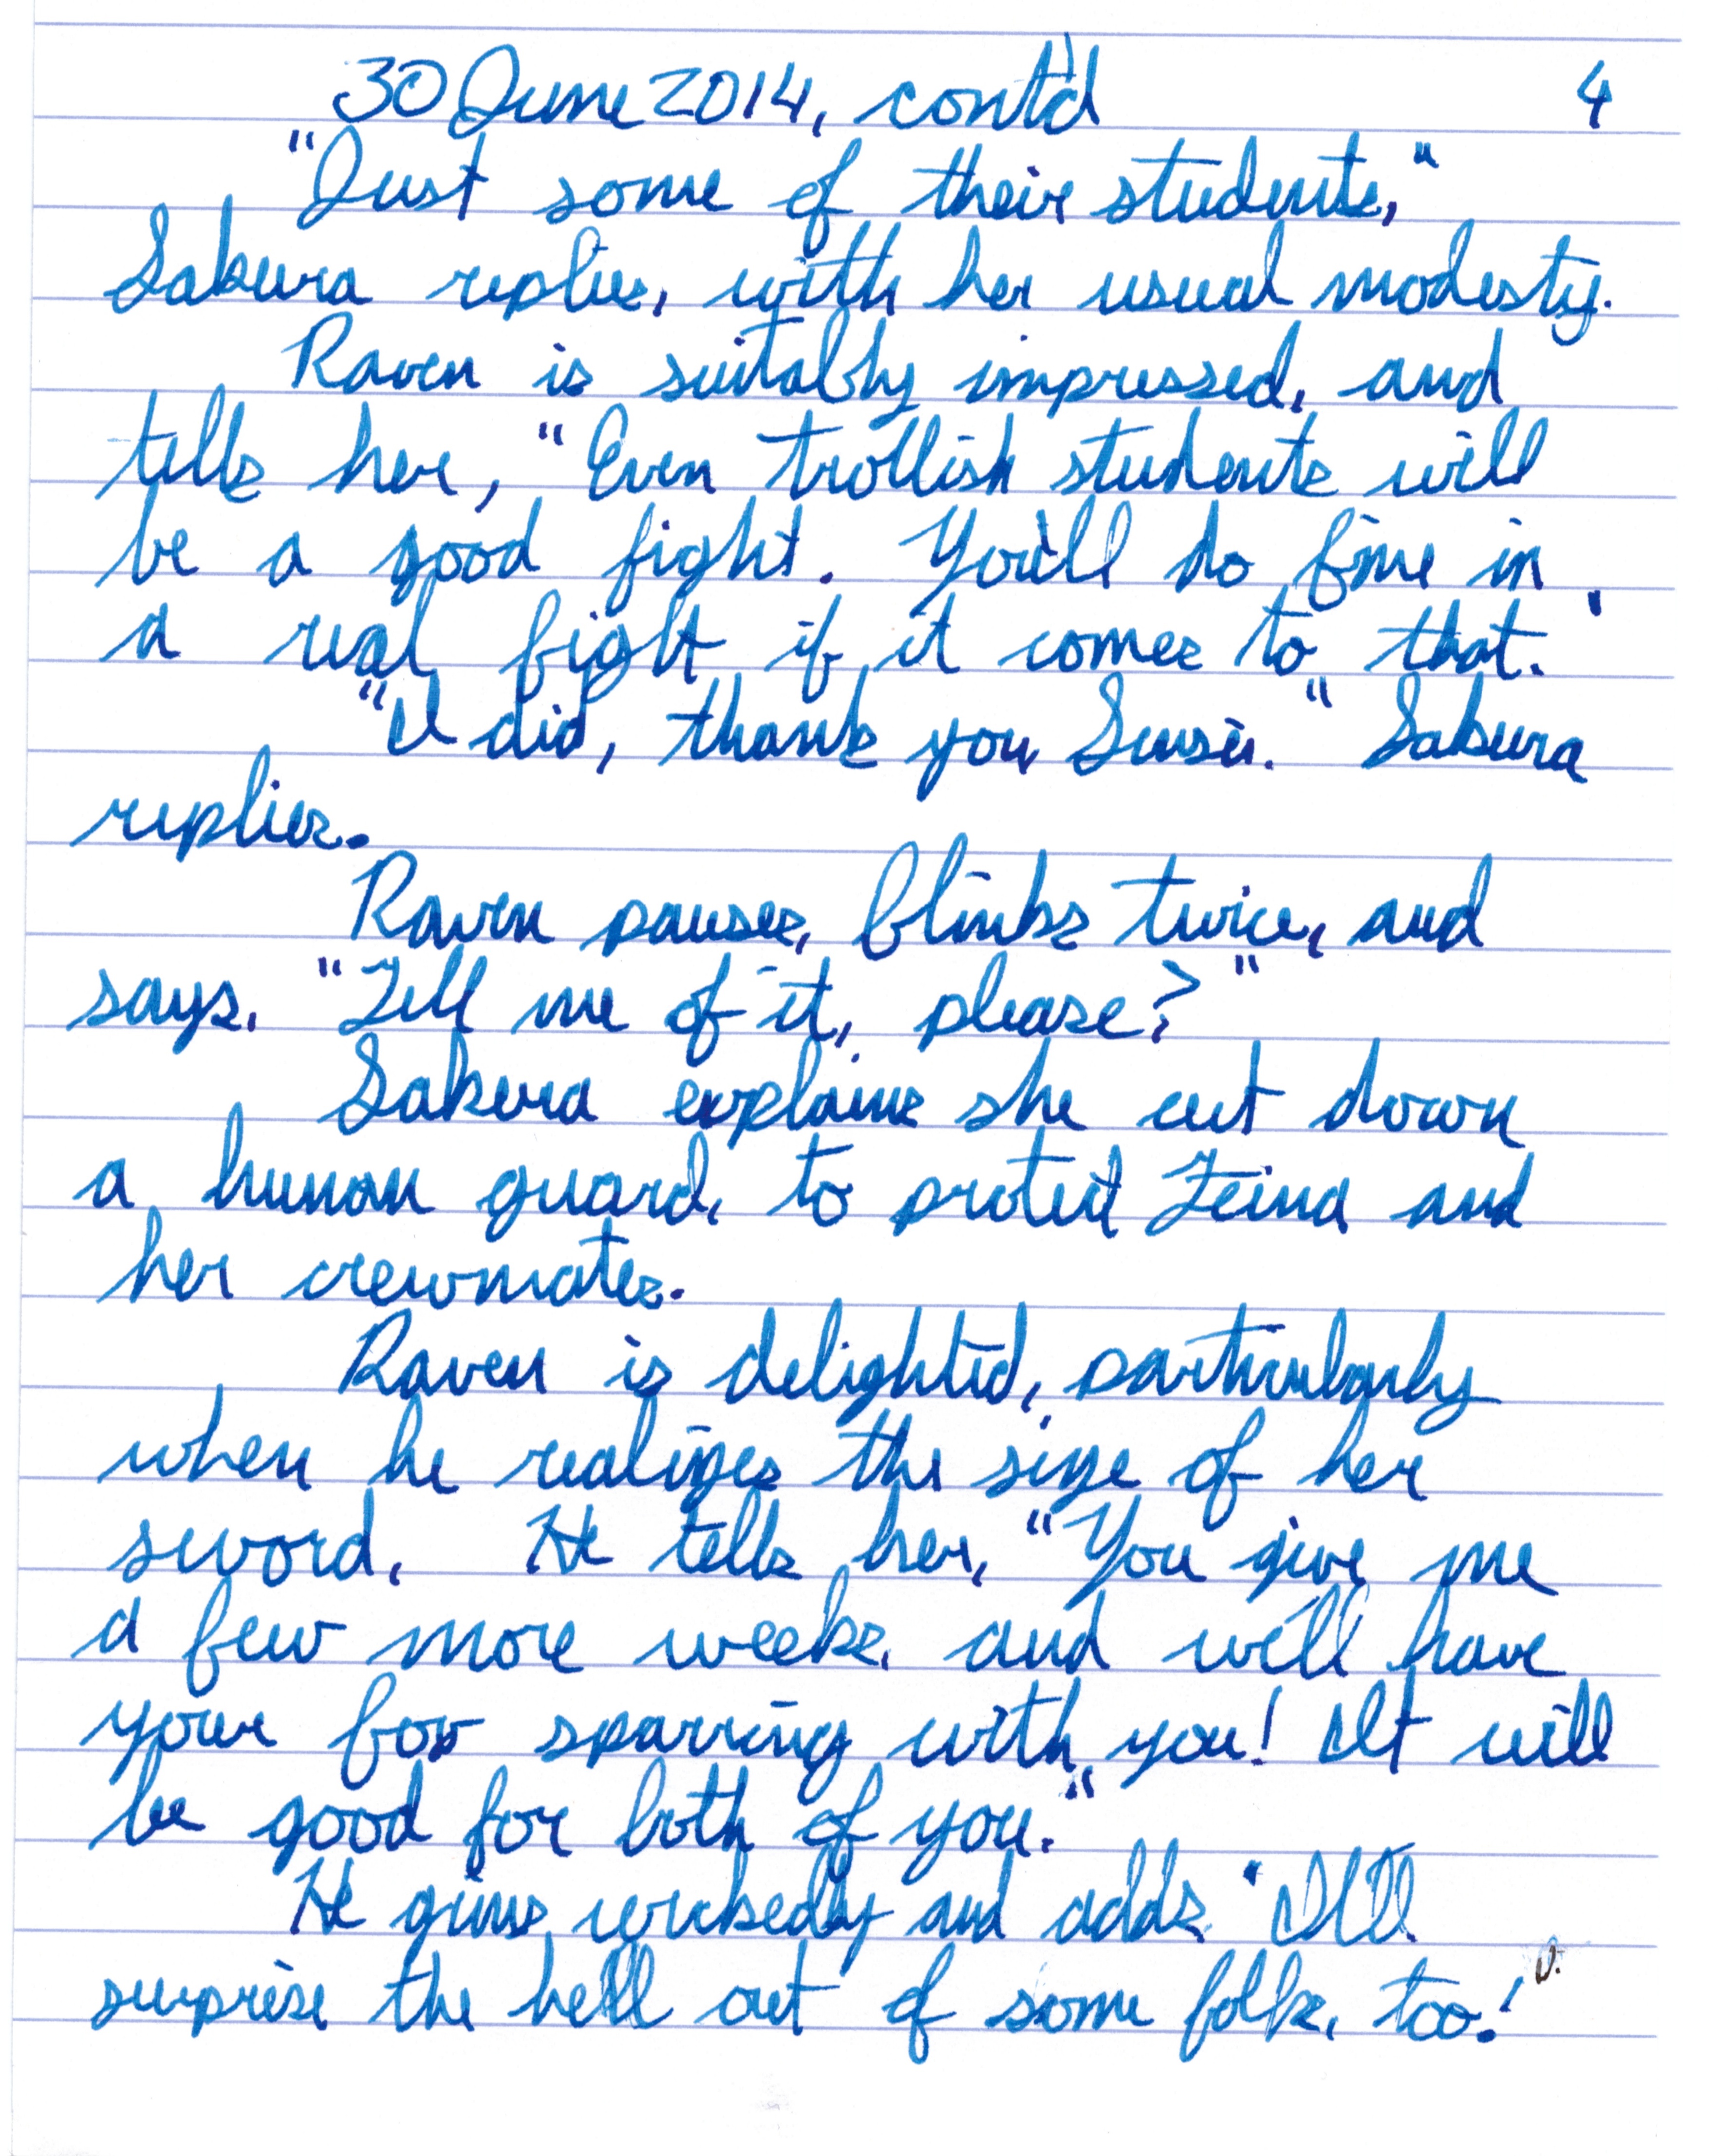 30 June 2014, cont'd 4
"Just some of their students,"
Sakura replies, with her usual modesty.
Raven is suitably impressed, and
tells her, "Even trollish students will
be a good fight. You'll do fine in
a real fight if it comes to that."
"I did, thank you, Sensei." Sakura
replies.
Raven pauses, blinks twice, and
says, "Tell me of it, please?"
Sakura explains she cut down
a human guard, to protect Zeina and
her crewmates.
Raven is delighted, particularly
when he realizes the size of her
sword. He tells her, "You give me
a few more weeks, and will have
your fox sparring with you! It will
be good for both of you."
He grins wickedly and adds "It'll
surprise the hell out of some folks, too!"